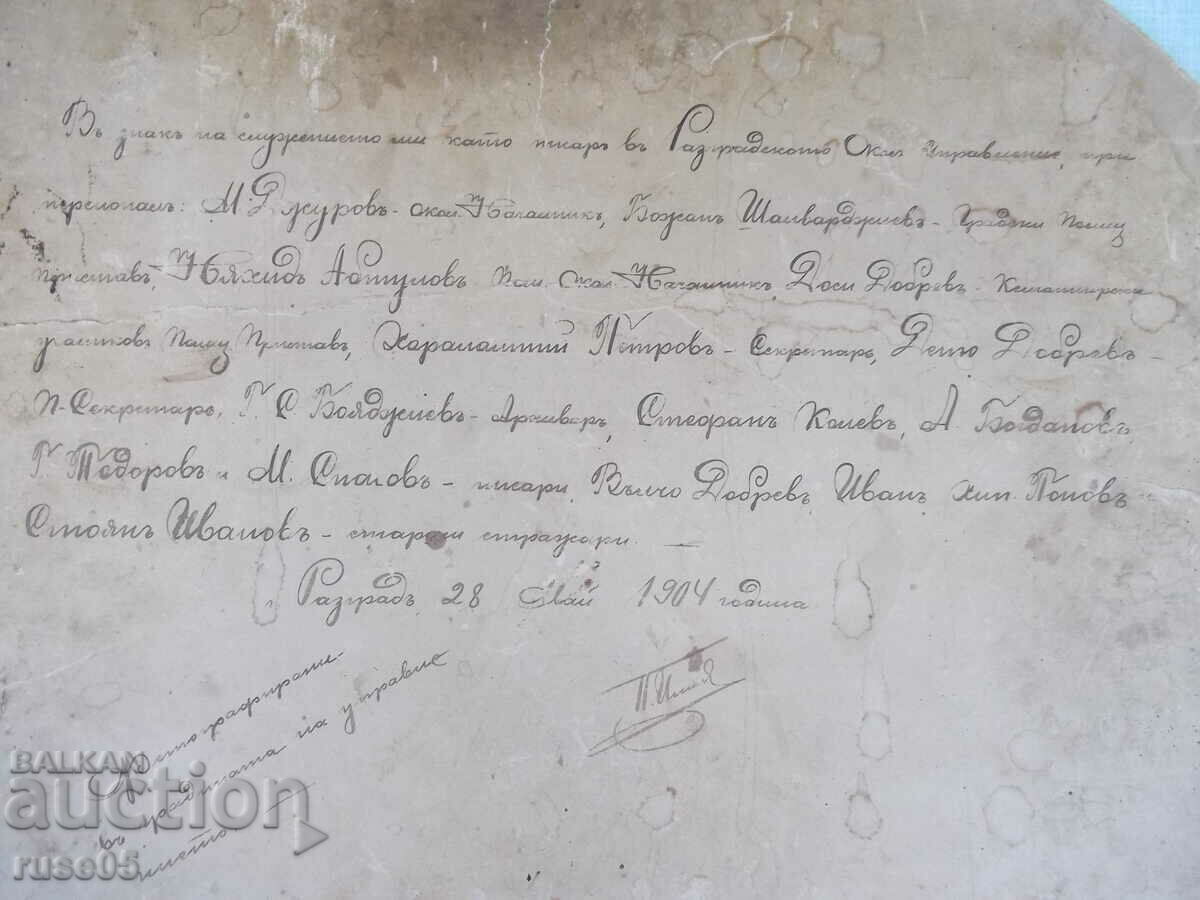 Въ знакъ на служението ми като писарь въ Разградското Окол. Управление, при
персонала: М. Джуровъ - Окол. Началникъ, Божанъ Шалварджиевъ - Градски Полиц.
Приставъ, Няхидъ Абтуловъ Пом. Окол. Началникъ, Доси Добревъ -
участковъ Полиц. Приставъ, Харалампий Петровъ - Секретарь, Деню Добревъ -
П-Секретарь, Г. С. Бояджиевъ - Архиварь, Стефанъ Колевъ, А. Богдановъ,
Г. Тодоровъ и М. Спасовъ - писари, Вълчо Добревъ, Иванъ хип. Поповъ
Стоянъ Ивановъ - старши стражари. —
Разградъ, 28 Май 1904 година
Фотографирани
въ градината на управле
нието
BALKAN
auction
ruse05